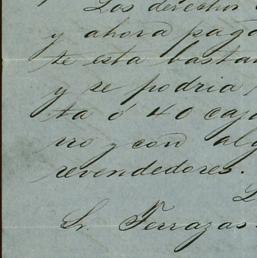 Los derechos
y ahora paga
te esta bastan
y se podria
ta ó 40 caj
ro y con alg
revendedores.
L
Sr. Terrazas